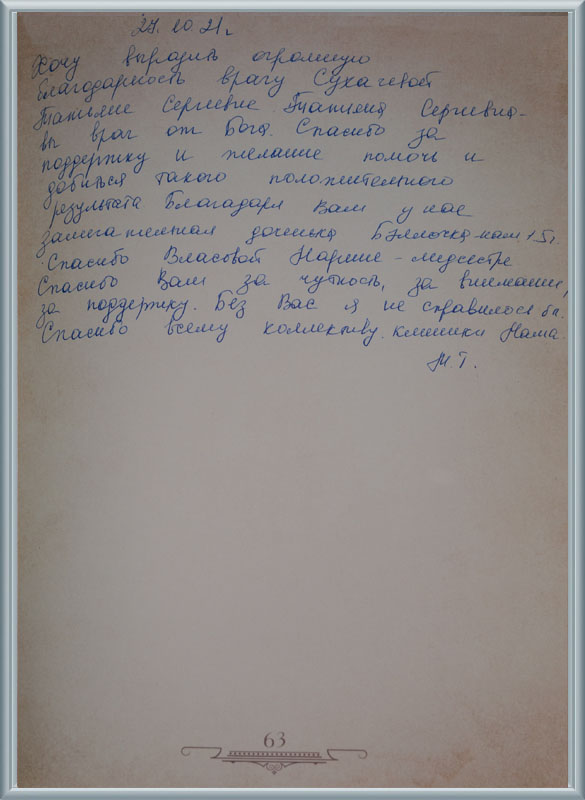 27.10.21г
Хочу выразить огромную
благодарность врачу Сухачевой
Татьяне Сергеевне. Татьяна Сергеевна-
вы врач от Бога. Спасибо за
поддержку и желание помочь и
добиться такого положительного
результата Благодаря Вам у нас
замечательная доченька Бэллочка-нам 1.5г.
Спасибо Власовой Нарине - медсестре
Спасибо Вам за чуткость, за внимание,
за поддержку. Без Вас я не справилась бы.
Спасибо всему коллективу клиники Мама.
М.Т.
63